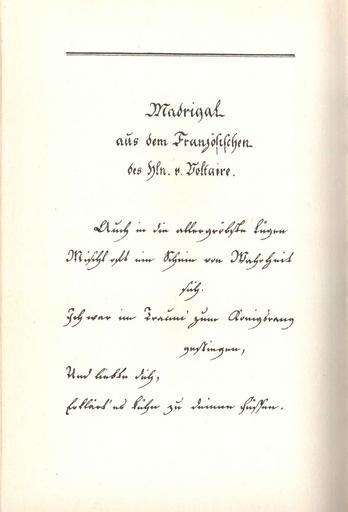 Madrigal
aus dem Französischen
des Hrn. v. Voltaire.
Auch in die allergröbste Lügen
Mischt oft ein Schein von Wahrheit
sich.
Ich war im Traum zum Königsrang
gestiegen,
Und liebte dich,
Erklärt' es kühn zu deinen Füssen.